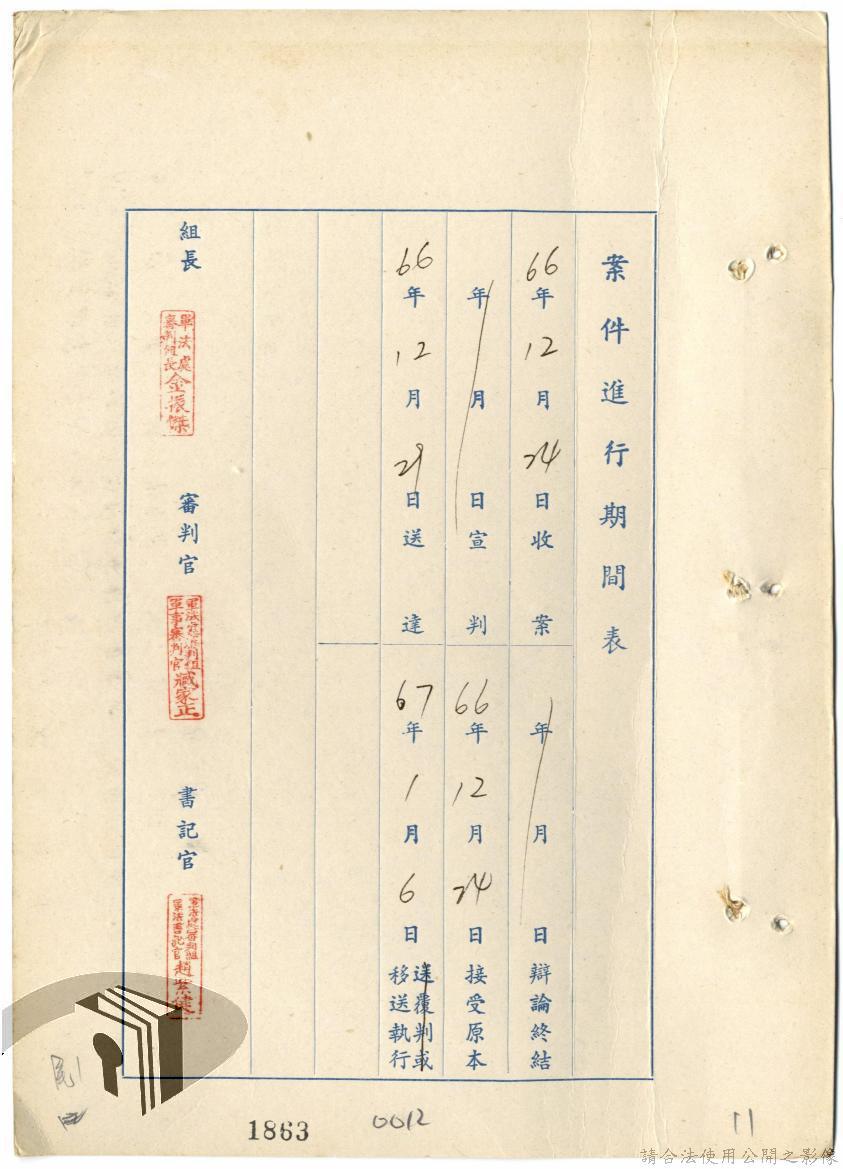 案件進行期間表
66年12月24日收案
年 月 日辯論終結
年 月 日宣判
66年12月24日接受原本
66年12月29日送達
67年1月6日送覆判或移送執行
組長
軍法處
審判組長
金振傑
審判官
軍事審判官
臧家正
書記官
軍法書記官
趙
1863
0012
11
請合法使用公開之影像